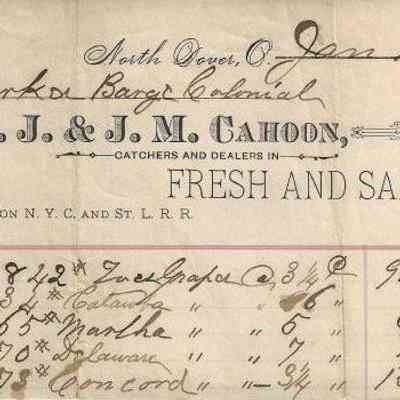 North Dover, O. Jan
Barge Colonial
. J. & J. M. CAHOON,
CATCHERS AND DEALERS IN
FRESH AND SA
ON N. Y. C. AND ST. L. R. R.
842# Ives Grapes @ 3 1/4 ¢
34# Catawba " " 6 "
55# Martha " " 5 "
70# Delaware " " 7 "
73# Concord " " 3/4 "